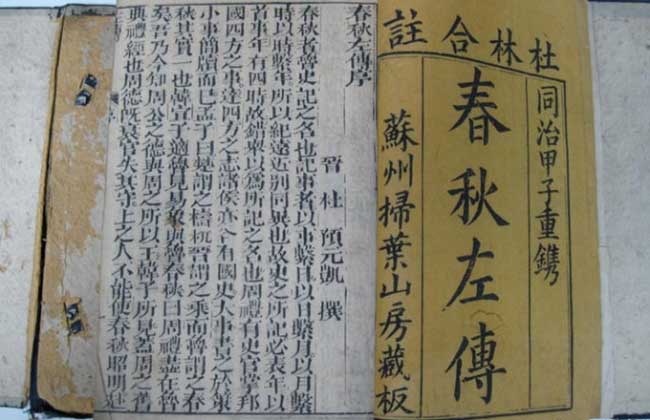 杜林合註
同治甲子重鐫
春秋左傳
蘇州掃葉山房藏板
春秋左傳序
晉 杜 預元凱 撰
春秋者魯史記之名也記事者以事繫日以日繫月以月繫
時以時繫年所以紀遠近別同異也故史之所記必表年以
首事年有四時故錯舉以爲所記之名也周禮有史官掌邦
國四方之事達四方之志諸侯亦各有國史大事書之於策
小事簡牘而已孟子曰楚謂之檮杌晉謂之乘而魯謂之春
秋其實一也韓宣子適魯見易象與魯春秋曰周禮盡在魯
矣吾乃今知周公之德與周之所以王韓子所見蓋周之舊
典禮經也周德既衰官失其守上之人不能使春秋昭明赴